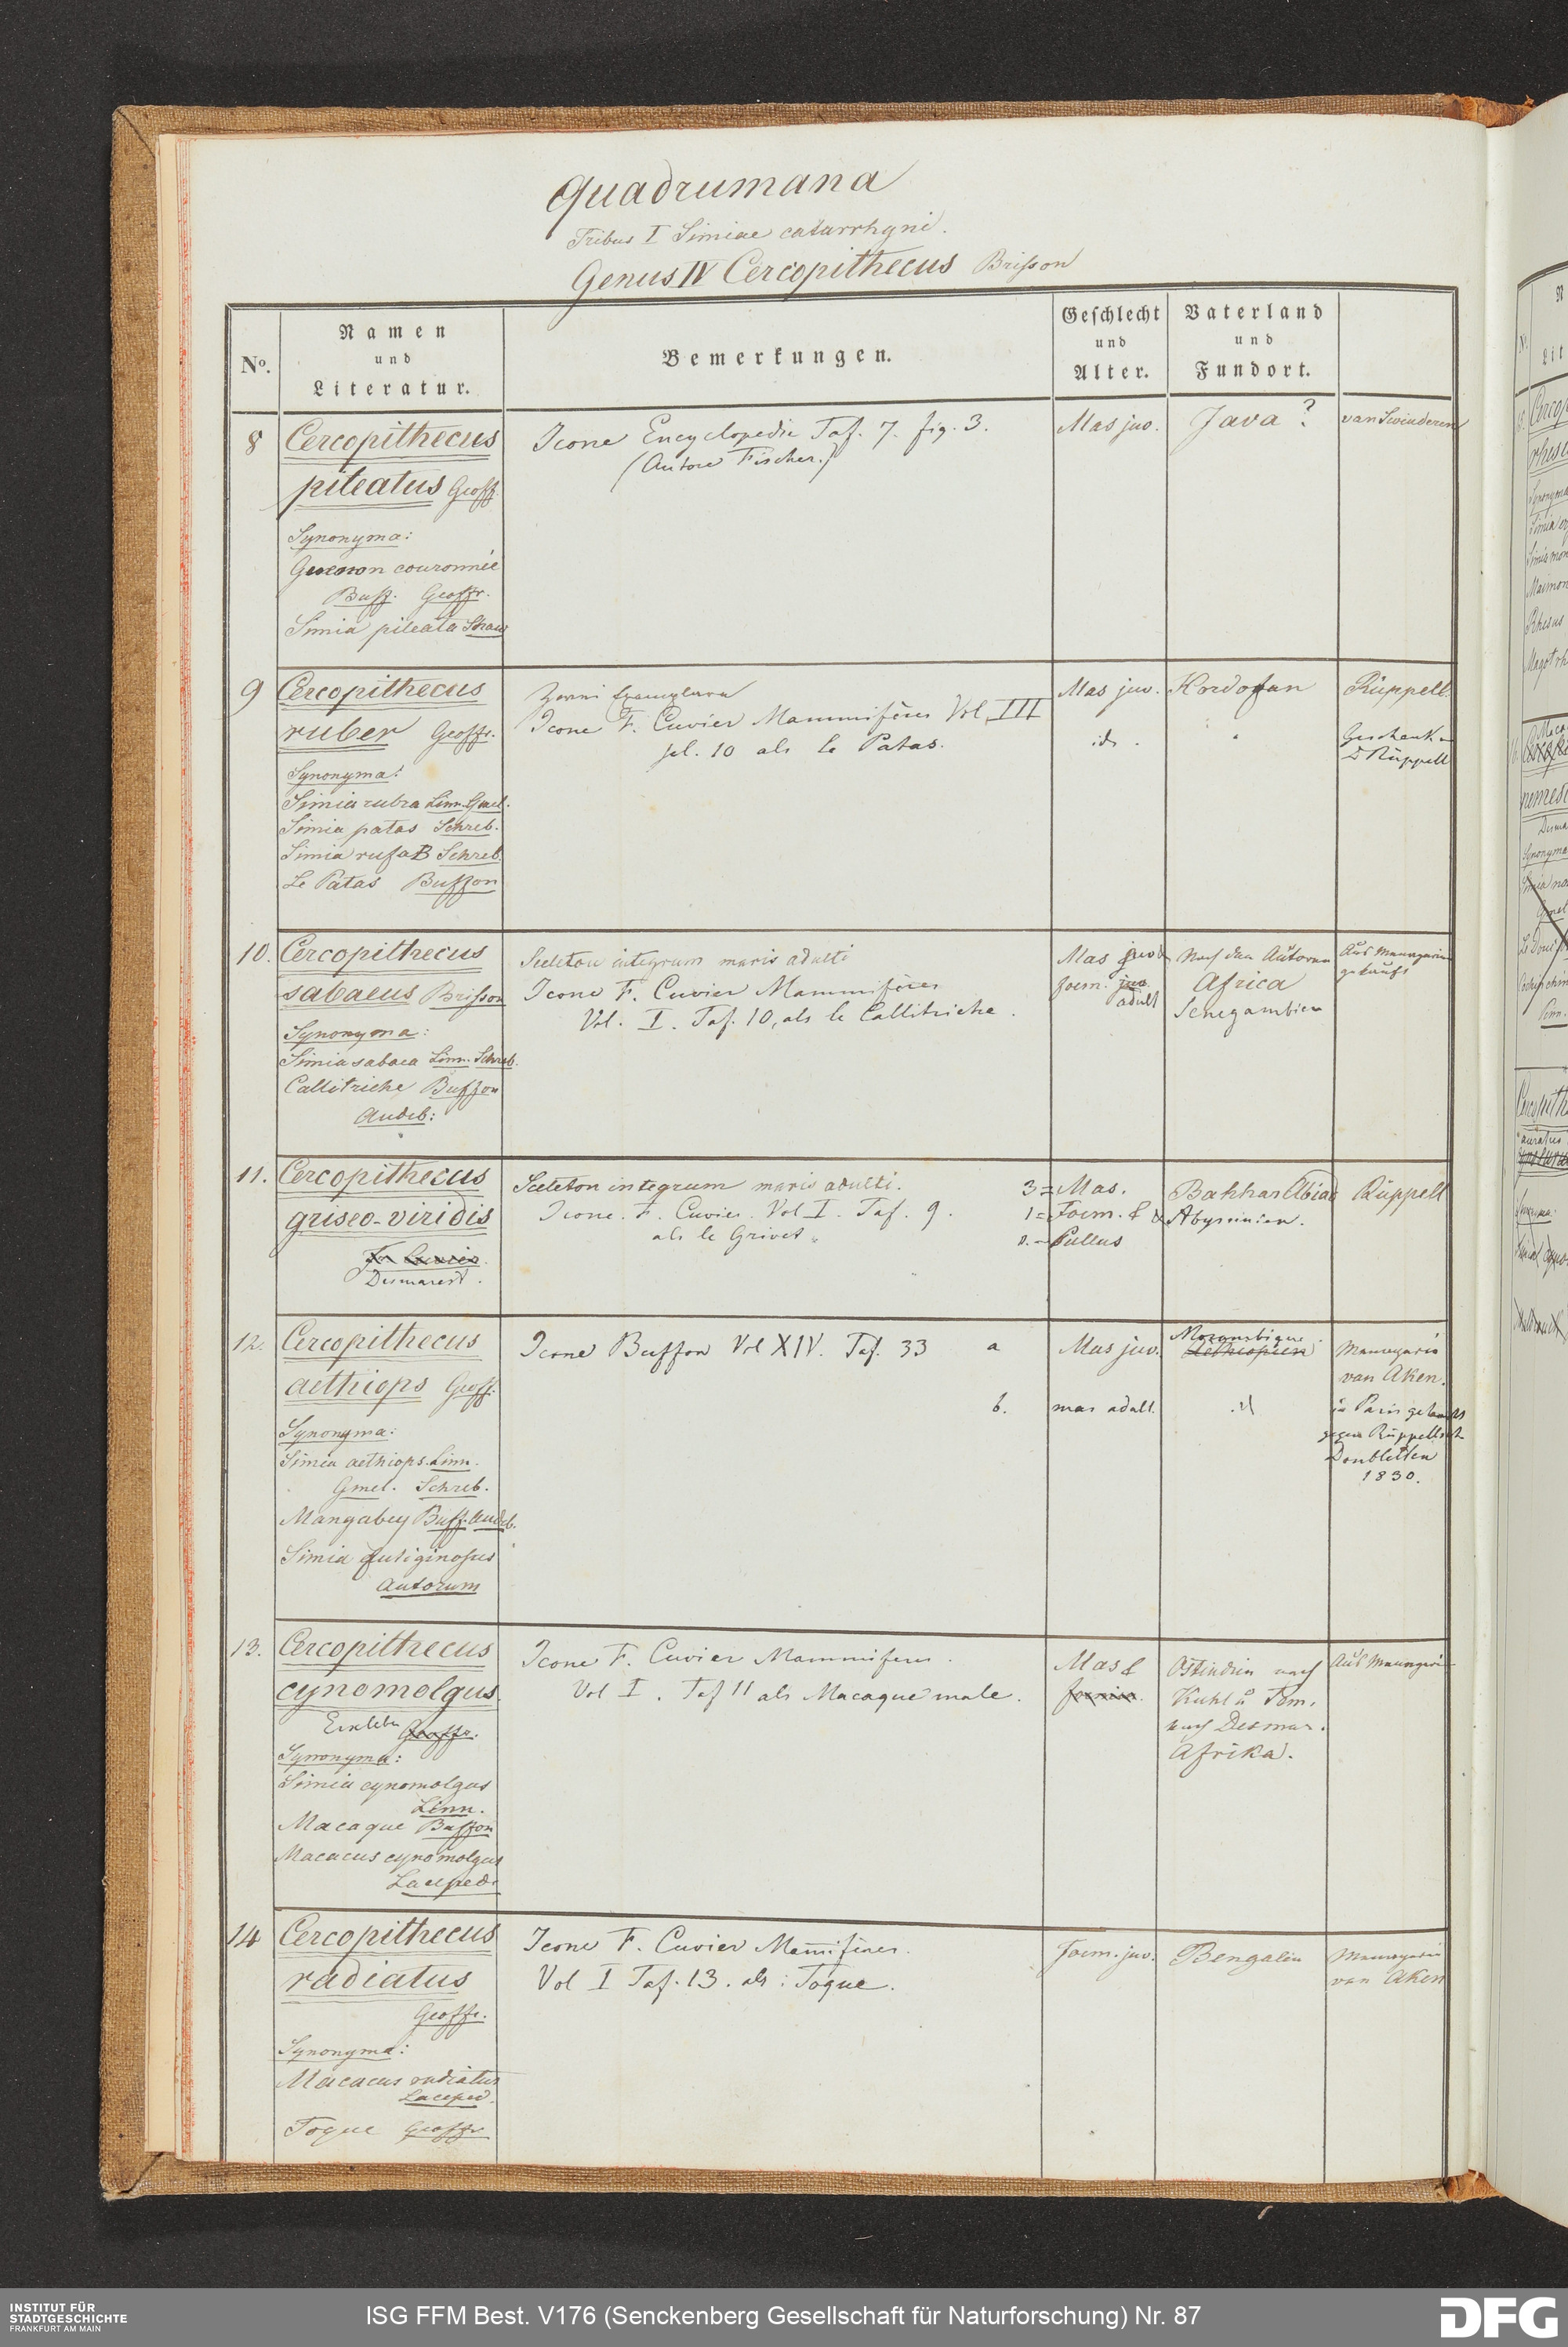 Quadrumana
Tribus I Simiae catarrhyni.
Genus IV Cercopithecus Brisson
No.
Namen
und
Literatur.
Bemerkungen.
Geschlecht
und
Alter.
Vaterland
und
Fundort.
8
Cercopithecus
pileatus Geoff.
Synonyma:
Guenon couronnée
Buff. Geoffr.
Simia pileata Shaw
Icone Encyclopedie Taf. 7. fig. 3.
(Autore Fischer.)
Mas juv.
Java ?
van Swinderen
9
Cercopithecus
ruber Geoffr.
Synonyma:
Simia rubra Linn. Gmel.
Simia patas Schreb.
Simia rufa B Schreb.
Le Patas Buffon
Exemplare
Icone F. Cuvier Mammifères Vol. III
pl. 10 als le Patas.
Mas juv.
id.
Kordofan
Rüppell.
Geschenk v
D Rüppell
10.
Cercopithecus
sabaeus Brisson
Synonyma:
Simia sabaea Linn. Schreb.
Callitriche Buffon
Audeb:
Sceleton integrum maris adulti
Icone F. Cuvier Mammifères
Vol. I. Taf. 10, als le Callitriche.
Mas
foem. juv.
adult
Nach den Autoren
Africa
Senegambien
Aus Menagerien
gekauft
11.
Cercopithecus
griseo-viridis
Fr Cuvier
Desmarest.
Sceleton integrum maris adulti.
Icone. F. Cuvier. Vol I. Taf. 9.
als le Grivet.
3 = Mas.
1 = Foem. &
Pullus
Bahhar Abiad
& Abyssinien.
Rüppell
12.
Cercopithecus
aethiops Geoff.
Synonyma:
Simia aethiops. Linn.
Gmel. Schreb.
Mangabey Buff. Audeb.
Simia fuliginosus
Autorum
Icone Buffon Vol XIV. Taf. 33
a
b.
Mas juv.
mas adult.
Mozambique
Aethiopien
id
Menagerie
van Aken.
in Paris getauscht
gegen Rüppellsch
Doubletten
1830.
13.
Cercopithecus
cynomolgus
Erxleben Geoffr.
Synonyma:
Simia cynomolgus
Linn.
Macaque Buffon
Macacus cynomolgus
Laceped.
Icone F. Cuvier Mammiferes.
Vol I. Taf 11 als Macaque male.
Mas &
foemin.
Ostindien nach
Kuhl u Tem.
nach Desmar.
Afrika.
Aus Menagerie
14
Cercopithecus
radiatus
Geoffr.
Synonyma:
Macacus radiatus
Laceped.
Toque Geoffr.
Icone F. Cuvier Mamifères.
Vol I Taf. 13. als: Toque.
Foem. juv.
Bengalen
Menagerie
van Aken
INSTITUT FÜR
STADTGESCHICHTE
FRANKFURT AM MAIN
ISG FFM Best. V176 (Senckenberg Gesellschaft für Naturforschung) Nr. 87
DFG